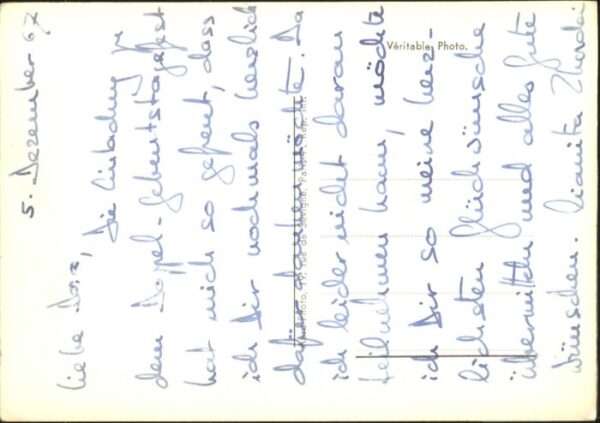 5. Dezember 67
Liebe
Die Einladung zu
dem Doppel-Geburtstagsfest
hat mich so gefreut, dass
ich Dir nochmals herzlich
dafür danken möchte. Da
ich leider nicht daran
teilnehmen kann, möchte
ich Dir so meine herz-
lichsten Glückwünsche
übermitteln und alles Gute
wünschen.
Véritable Photo.